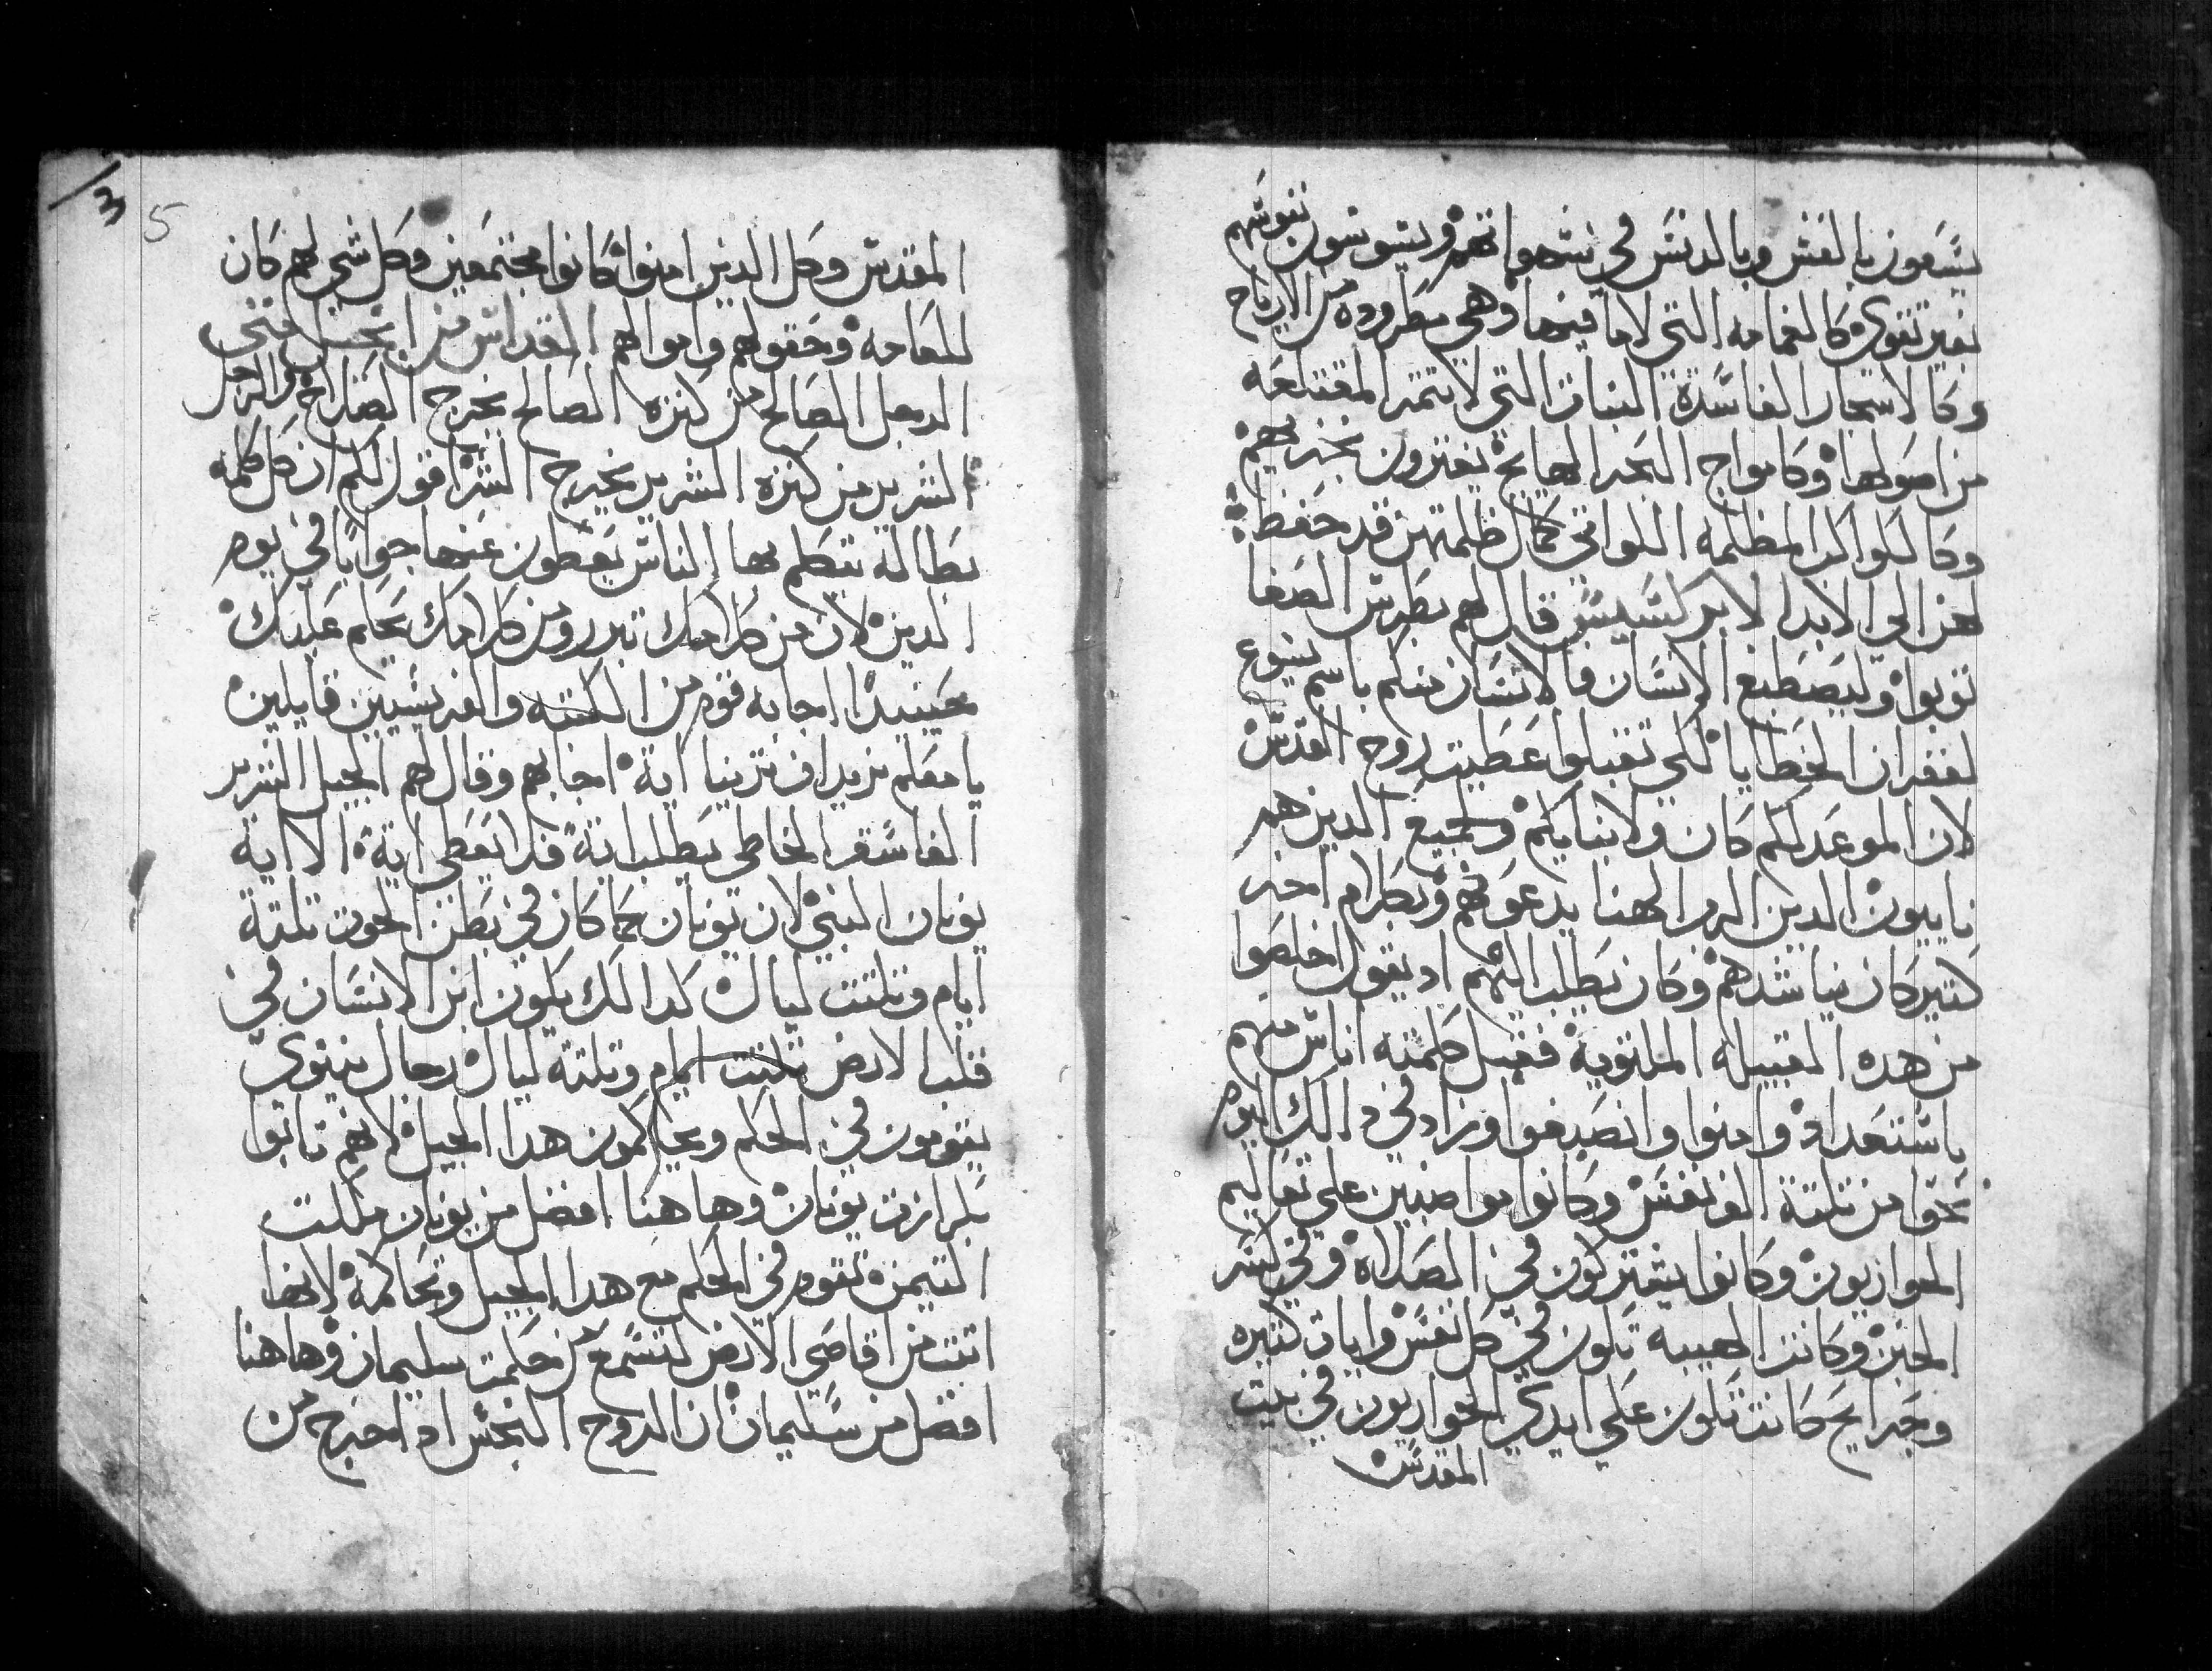 يسعون بالغش وبالدنس في شهواتهم ويسوسون نفوسهم
بغير تقوي كالغمامه التي لا ما فيها وهي مطروده من الارياح
وكالاسجار الفاسدة النبات التي لا يتمر المقتلعه
من اصولها وكامواج البحر الهايج يفترون بخزيهم
وكالكواكب المظلمه اللواتي كمال ظلمتهن قد حفظ
لهن الي الابد الابركسيس قال لهم بطرس الصفا
توبوا وليصطبغ الانسان فالانسان منكم باسم يسوع
لغفران الخطايا لكي تقبلوا عطيت روح القدس
لان الموعد لكم كان ولابنايكم ولجميع الدين هم
ناييون الدين الرب الهنا يدعوهم وبكلام اخر
كتير كان يناشدهم وكان يطلب اليهم اد يقول اخلصوا
من هده القبيله الملتويه فقبل كلمته اناس منهم
باستعداد وامنوا وانصبغوا وزاد في دالك اليوم
نحوا من تلتة الف نفس وكانوا مواضبين علي تعاليم
الحواريون وكانوا يشتركون في الصلاه وفي كسر
الخبز وكانت الهيبه تكون في كل نفس وايات كتيره
وجرايح كانت تكون علي ايدي الحواريون في بيت
المقدس
3
5
المقدس وكل الدين امنوا كانوا مجتمعين وكل شي لهم كان
للعامه وحقولهم واموالهم القداس من انجيل متي
الرجل الصالح من كنزه الصالح يخرج الصلاح والرجل
الشرير من كنزه الشرير يخرج الشر اقول لكم ان كل كلمه
بطاله يتكلم بها الناس يعطون عنها جوابا في يوم
الدين لان من كلامك تبرر ومن كلامك يحكم عليك
حينيدا اجابه قوم من الكتبه والفريسيين قايلين
يا معلم نريد ان ترينا اية اجابهم وقال لهم الجيل الشرير
الفاسق الخاطي يطلب اية فلا يعطي اية الا اية
يونان النبي لان يونان كما كان في بطن الحوت تلتة
ايام وتلتت ليال كدالك يكون ابن الانسان في
قلب الارض تلتت ايام وتلتة ليال رجال نينوي
يقومون في الحكم ويحاكمون هدا الجيل لانهم تابوا
بكرازت يونان وهاهنا افضل من يونان ملكت
التيمن تقوم في الحكم مع هدا الجيل وتحاكمه لانها
اتت من اقاصي الارض لتسمع من حكمت سليمان وهاهنا
افضل من سليمان ان الروح النجس اد اخرج من